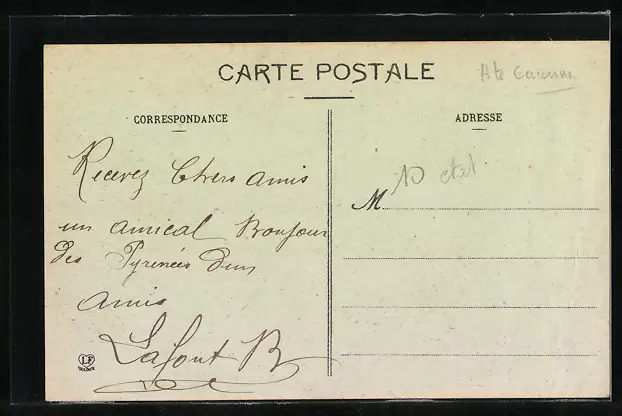 CARTE POSTALE
Hte Garonne
CORRESPONDANCE
ADRESSE
Recevez Chers amis
un amical Bonjour
des Pyrénées d'un
amis
Lafont B
M
10 etat
LF